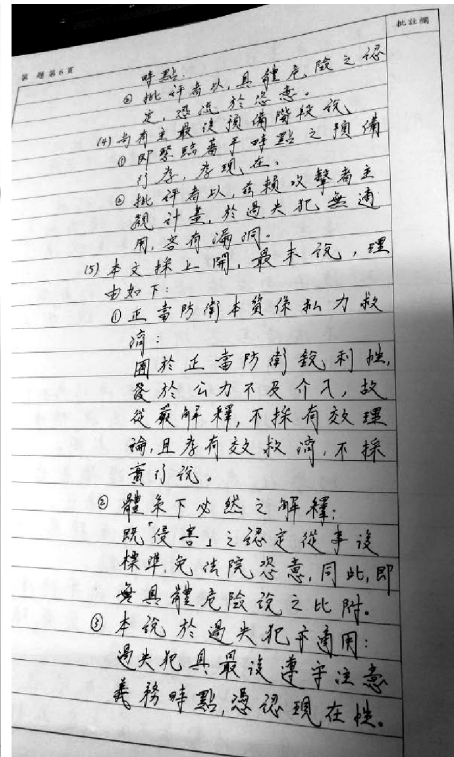 第 題第6頁
批註欄
時點。
②批評者以,具體危險之認
定,恐流於恣意。
(4)尚有主最後預備階段說
①即緊臨著手時點之預備
行存,存現在。
②批評者以,依賴攻擊者主
觀計畫,於過失犯無適
用,容有漏洞。
(5)本文採上開,最末說,理
由如下:
①正當防衛本質係私力救
濟:
囿於正當防衛銳利性,
發於公力不及介入,故
從嚴解釋,不採有效理
論,且存有效救濟,不採
實行說。
②體系下必然之解釋:
既「侵害」之認定從事後
標準,免法院恣意,同此,即
無具體危險說之比附。
③本說於過失犯亦適用:
過失犯具最後遵守注意
義務時點,憑認現在性。